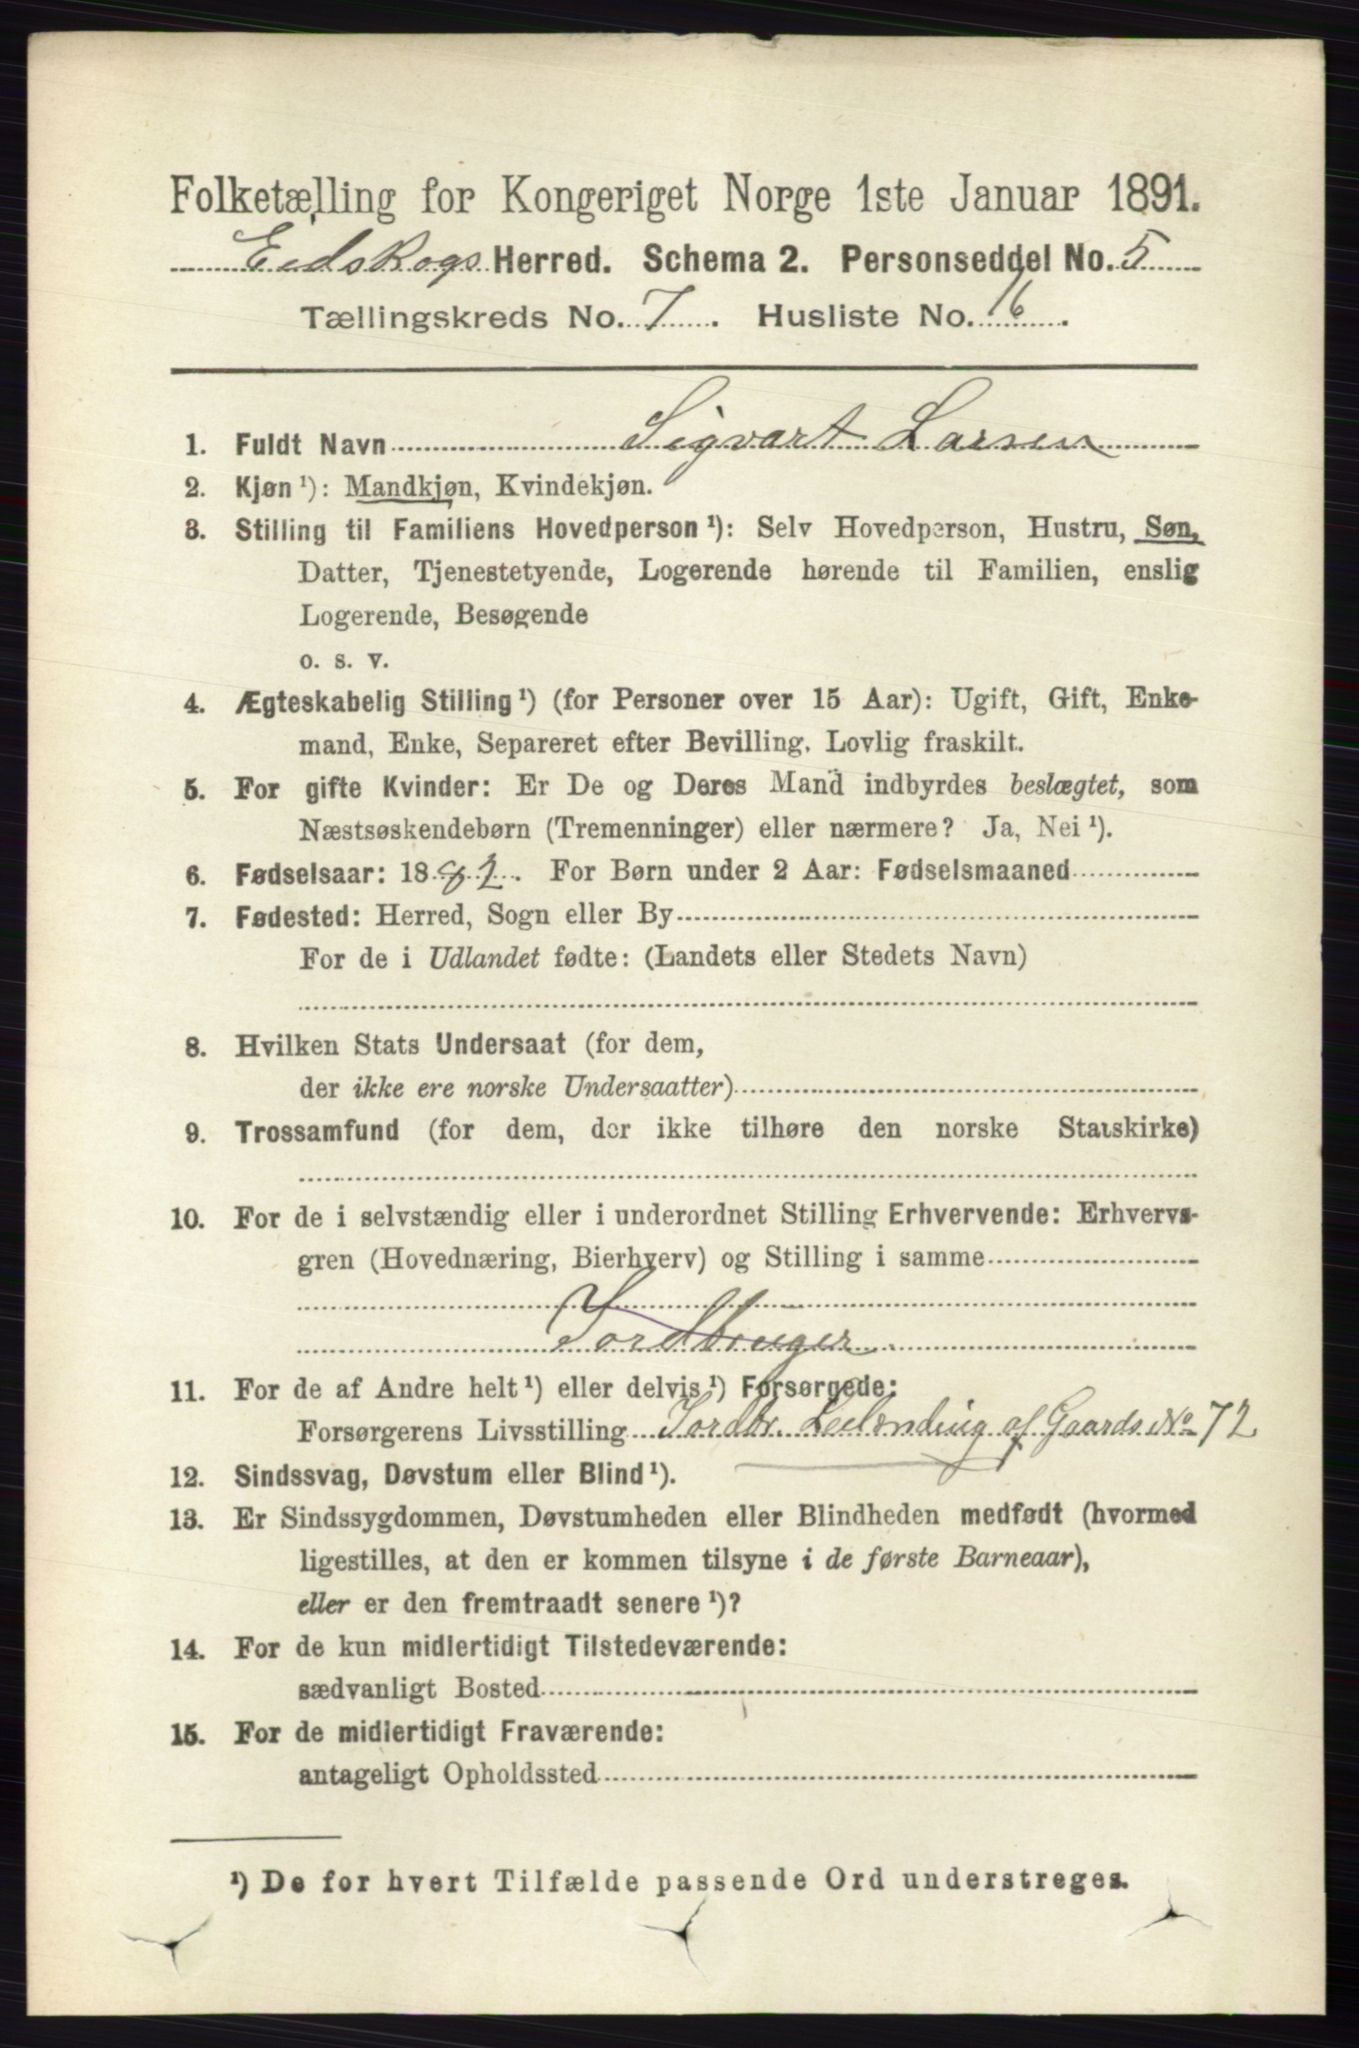 Folketælling for Kongeriget Norge 1ste Januar 1891.
Eidskogs Herred. Schema 2. Personseddel No. 5
Tællingskreds No. 7. Husliste No. 16.
1. Fuldt Navn Sigvart Larsen
2. Kjøn ¹): Mandkjøn, Kvindekjøn.
3. Stilling til Familiens Hovedperson ¹): Selv Hovedperson, Hustru, Søn,
Datter, Tjenestetyende, Logerende hørende til Familien, enslig
Logerende, Besøgende
o. s. v.
4. Ægteskabelig Stilling ¹) (for Personer over 15 Aar): Ugift, Gift, Enke-
mand, Enke, Separeret efter Bevilling. Lovlig fraskilt.
5. For gifte Kvinder: Er De og Deres Mand indbyrdes beslægtet, som
Næstsøskendebørn (Tremenninger) eller nærmere? Ja, Nei ¹).
6. Fødselsaar: 1882. For Børn under 2 Aar: Fødselsmaaned
7. Fødested: Herred, Sogn eller By
For de i Udlandet fødte: (Landets eller Stedets Navn)
8. Hvilken Stats Undersaat (for dem,
der ikke ere norske Undersaatter)
9. Trossamfund (for dem, der ikke tilhøre den norske Statskirke)
10. For de i selvstændig eller i underordnet Stilling Erhvervende: Erhvervs-
gren (Hovednæring, Bierhverv) og Stilling i samme
Jordbruger
11. For de af Andre helt ¹) eller delvis ¹) Forsørgede:
Forsørgerens Livsstilling Jordbr. Leilending af Gaards No 72
12. Sindssvag, Døvstum eller Blind ¹).
13. Er Sindssygdommen, Døvstumheden eller Blindheden medfødt (hvormed
ligestilles, at den er kommen tilsyne i de første Barneaar),
eller er den fremtraadt senere ¹)?
14. For de kun midlertidigt Tilstedeværende:
sædvanligt Bosted
15. For de midlertidigt Fraværende:
antageligt Opholdssted
¹) De for hvert Tilfælde passende Ord understreges.